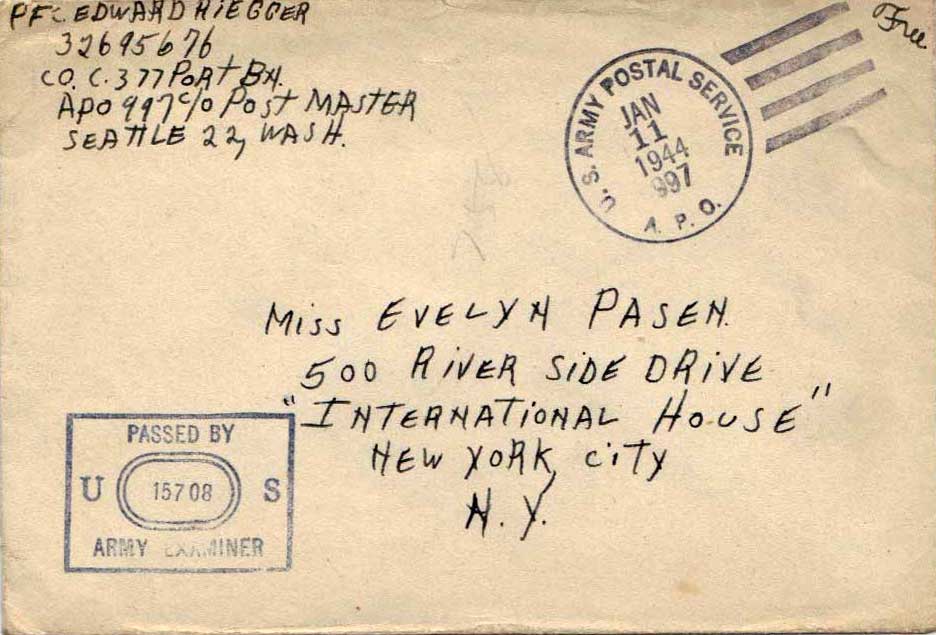 PFC. EDWARD RIEGGER
32695676
CO. C. 377 PORT BN.
APO 997 c/o POST MASTER
SEATTLE 22, WASH.
Free
U.S. ARMY POSTAL SERVICE
JAN
11
1944
997
A. P. O.
Miss EVELYN PASEN.
500 RIVER SIDE DRIVE
"INTERNATIONAL HOUSE"
NEW YORK, CITY
N.Y.
PASSED BY
U 15708 S
ARMY EXAMINER